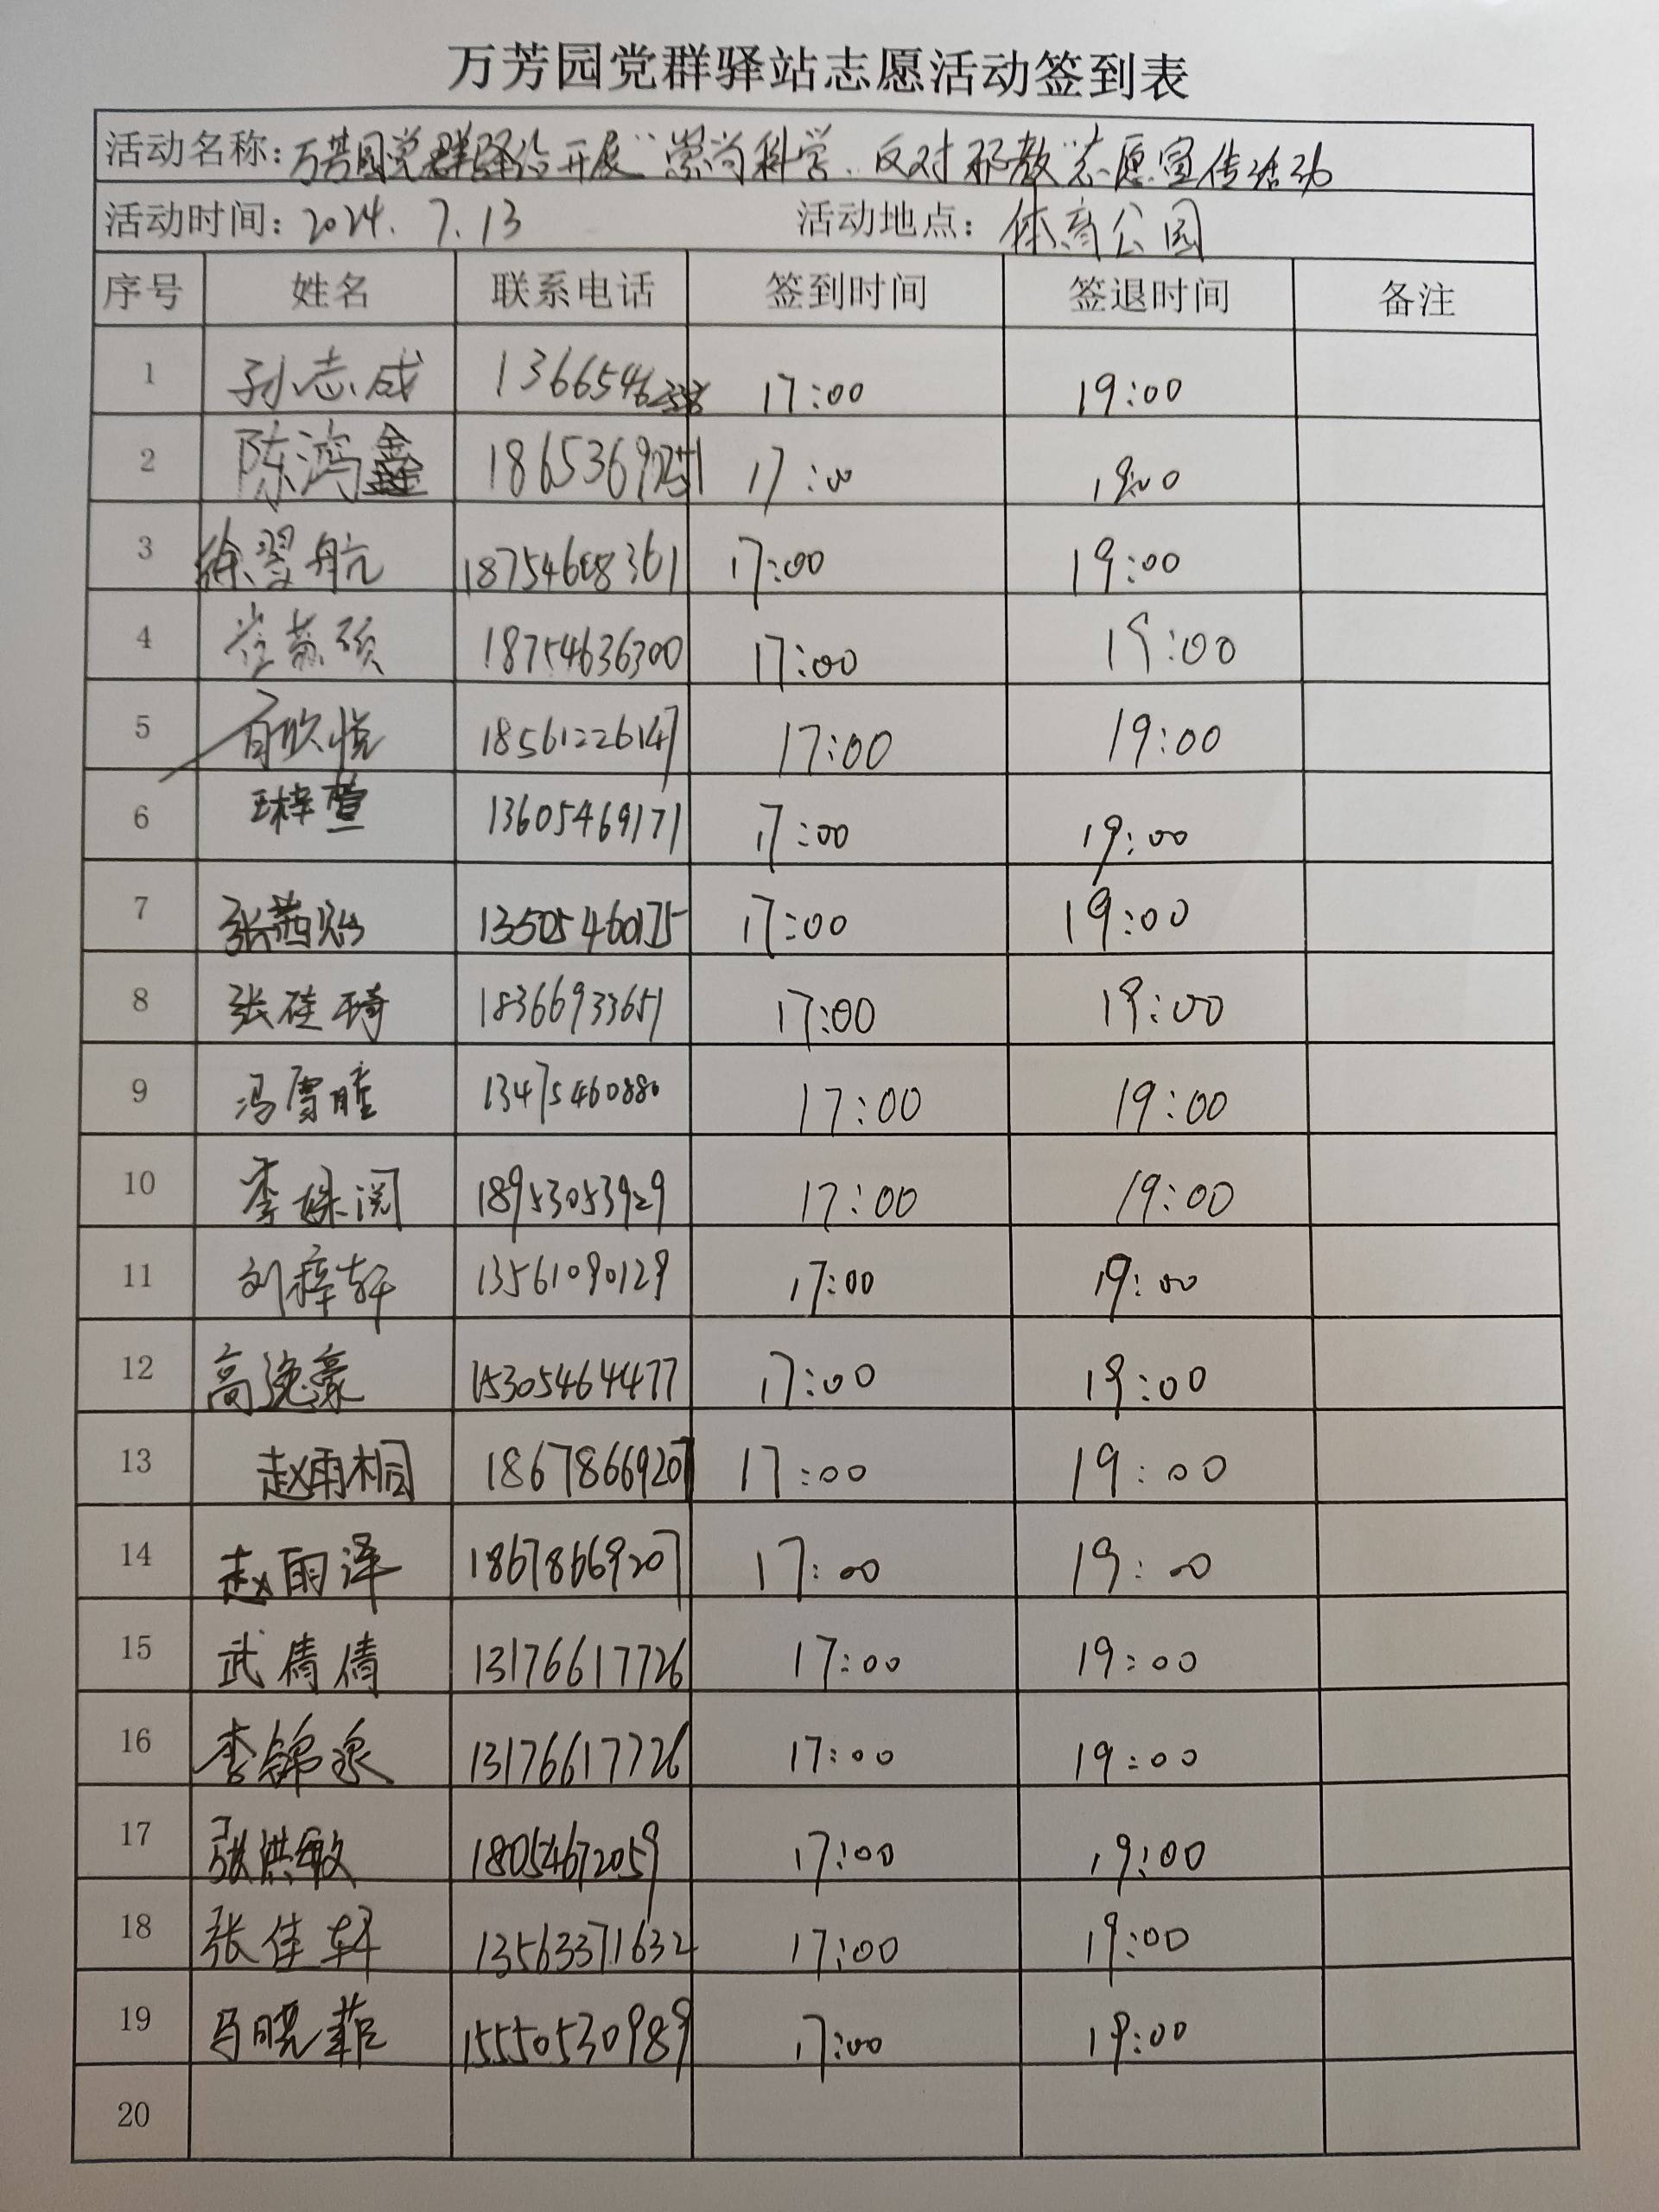 万芳园党群驿站志愿活动签到表
活动名称：万芳园党群驿站开展“崇尚科学、反对邪教”志愿宣传活动
活动时间：2024.7.13 活动地点：体育公园
序号 姓名 联系电话 签到时间 签退时间 备注
1 孙志成 17:00 19:00
2 陈鸿鑫 17:00 19:00
3 徐翌航 18754608361 17:00 19:00
4 崔慕硕 18754636300 17:00 19:00
5 欣悦 18561226147 17:00 19:00
6 王梓萱 13605469171 17:00 19:00
7 张茜贻 13505460175 17:00 19:00
8 张硅琦 18366933651 17:00 19:00
9 冯雪瞳 13475460880 17:00 19:00
10 李姝润 18953053929 17:00 19:00
11 刘梓轩 13561090129 17:00 19:00
12 高逸豪 15305464477 17:00 19:00
13 赵雨桐 18678669207 17:00 19:00
14 赵雨泽 18678669207 17:00 19:00
15 武倩倩 13176617726 17:00 19:00
16 李锦泉 13176617726 17:00 19:00
17 张洪敏 18054672059 17:00 19:00
18 张佳轩 13563371632 17:00 19:00
19 马晓菲 15550530989 17:00 19:00
20